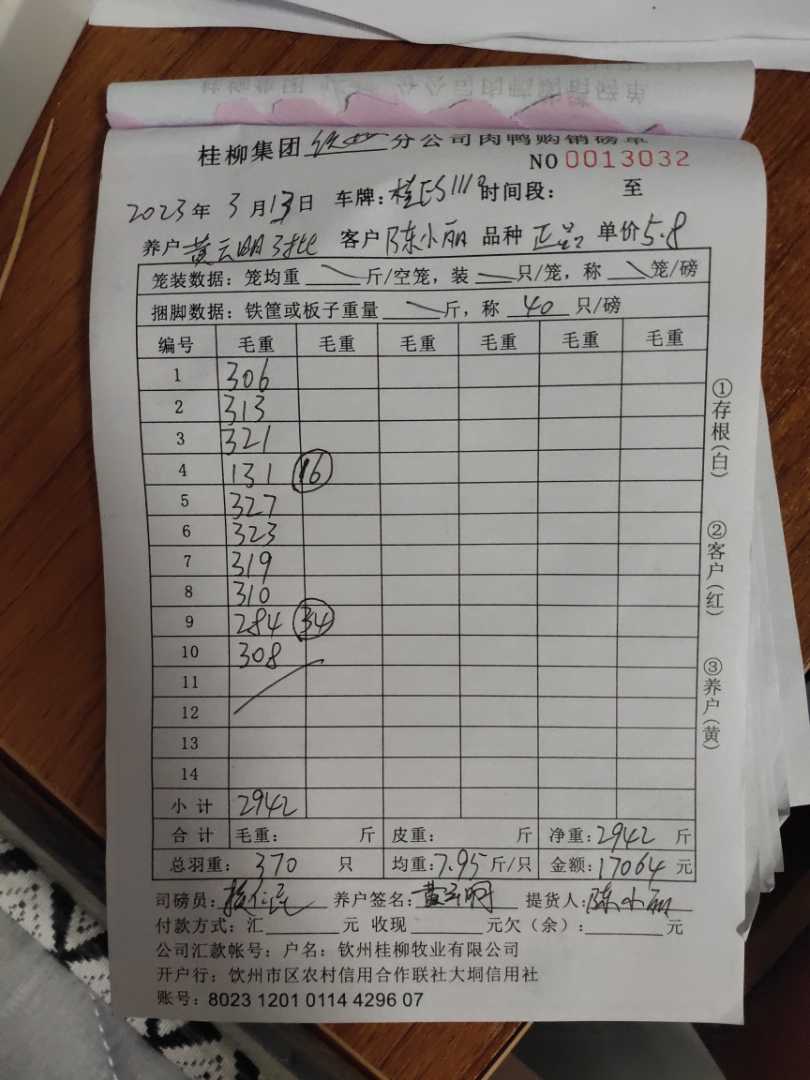 桂柳集团 钦州 分公司肉鸭购销磅单
NO 0013032
2023年 3月13日 车牌: 时间段: 至
养户 黄云明3批 客户 陈小丽 品种 正品 单价 5.8
笼装数据: 笼均重 斤/空笼, 装 只/笼, 称 笼/磅
捆脚数据: 铁筐或板子重量 斤, 称 40 只/磅
编号 毛重 毛重 毛重 毛重 毛重 毛重
1 306
2 313
3 321
4 131 16
5 327
6 323
7 319
8 310
9 284 34
10 308
11
12
13
14
小计 2942
合计 毛重: 斤 皮重: 斤 净重: 2942 斤
总羽重: 370 只 均重: 7.95 斤/只 金额: 17064 元
司磅员: 养户签名: 黄云明 提货人: 陈小丽
付款方式: 汇 元 收现 元欠(余): 元
公司汇款帐号: 户名: 钦州桂柳牧业有限公司
开户行: 钦州市区农村信用合作联社大垌信用社
账号: 8023 1201 0114 4296 07
①存根(白)
②客户(红)
③养户(黄)